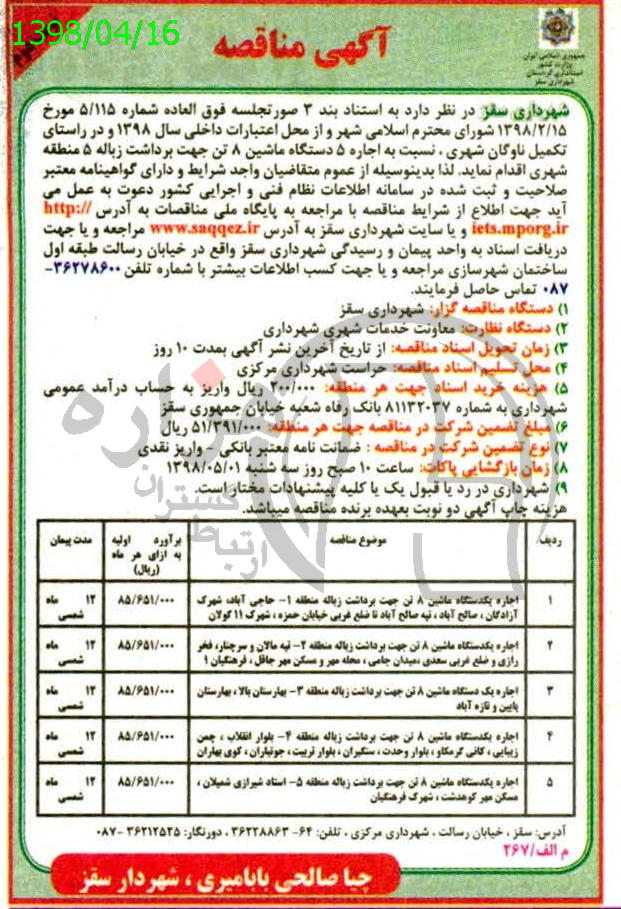 1398/04/16
آگهی مناقصه
جمهوری اسلامی ایران
وزارت کشور
استانداری کردستان
شهرداری سقز
شهرداری سقز در نظر دارد به استناد بند ۳ صورتجلسه فوق العاده شماره ۵/۱۱۵ مورخ
۱۳۹۸/۲/۱۵ شورای محترم اسلامی شهر و از محل اعتبارات داخلی سال ۱۳۹۸ و در راستای
تکمیل ناوگان شهری ، نسبت به اجاره ۵ دستگاه ماشین ۸ تن جهت برداشت زباله ۵ منطقه
شهری اقدام نماید. لذا بدینوسیله از عموم متقاضیان واجد شرایط و دارای گواهینامه معتبر
صلاحیت و ثبت شده در سامانه اطلاعات نظام فنی و اجرایی کشور دعوت به عمل می
آید جهت اطلاع از شرایط مناقصه با مراجعه به پایگاه ملی مناقصات به آدرس http://
iets.mporg.ir و یا سایت شهرداری سقز به آدرس www.saqqez.ir مراجعه و یا جهت
دریافت اسناد به واحد پیمان و رسیدگی شهرداری سقز واقع در خیابان رسالت طبقه اول
ساختمان شهرسازی مراجعه و یا جهت کسب اطلاعات بیشتر با شماره تلفن ۳۶۲۷۸۶۰۰-
۰۸۷ تماس حاصل فرمایند.
۱) دستگاه مناقصه گزار: شهرداری سقز
۲) دستگاه نظارت: معاونت خدمات شهری شهرداری
۳) زمان تحویل اسناد مناقصه: از تاریخ آخرین نشر آگهی بمدت ۱۰ روز
۴) محل تسلیم اسناد مناقصه: حراست شهرداری مرکزی
۵) هزینه خرید اسناد جهت هر منطقه: ۲۰۰/۰۰۰ ریال واریز به حساب درآمد عمومی
شهرداری به شماره ۸۱۱۳۲۰۳۷ بانک رفاه شعبه خیابان جمهوری سقز
۶) مبلغ تضمین شرکت در مناقصه جهت هر منطقه: ۵۱/۳۹۱/۰۰۰ ریال
۷) نوع تضمین شرکت در مناقصه : ضمانت نامه معتبر بانکی - واریز نقدی
۸) زمان بازگشایی پاکات: ساعت ۱۰ صبح روز سه شنبه ۱۳۹۸/۰۵/۰۱
۹) شهرداری در رد یا قبول یک یا کلیه پیشنهادات مختار است.
هزینه چاپ آگهی دو نوبت بعهده برنده مناقصه میباشد.
هزاره
گستران
ارتباط
ردیف موضوع مناقصه برآورد اولیه به ازای هر ماه (ریال) مدت پیمان
۱ اجاره یکدستگاه ماشین ۸ تن جهت برداشت زباله منطقه ۱- حاجی آباد، شهرک ۸۵/۶۵۱/۰۰۰ ۱۲ ماه
آزادگان ، صالح آباد ، تپه صالح آباد تا ضلع غربی خیابان حمزه ، شهرک ۱۱ کولان شمسی
۲ اجاره یکدستگاه ماشین ۸ تن جهت برداشت زباله منطقه ۲- تپه مالان و سرچنار، فخر ۸۵/۶۵۱/۰۰۰ ۱۲ ماه
رازی و ضلع غربی سعدی ،میدان جامی ، محله مهر و مسکن مهر جافل ، فرهنگیان ۱ شمسی
۳ اجاره یک دستگاه ماشین ۸ تن جهت برداشت زباله منطقه ۳- بهارستان بالا، بهارستان ۸۵/۶۵۱/۰۰۰ ۱۲ ماه
پایین و تازه آباد شمسی
۴ اجاره یکدستگاه ماشین ۸ تن جهت برداشت زباله منطقه ۴- بلوار انقلاب ، چمن ۸۵/۶۵۱/۰۰۰ ۱۲ ماه
زیبایی ، کانی گرمکاو ، بلوار وحدت ، سنگبران ، بلوار تربیت ، جونباران ، کوی بهاران شمسی
۵ اجاره یکدستگاه ماشین ۸ تن جهت برداشت زباله منطقه ۵- استاد شیرازی شمیلان ، ۸۵/۶۵۱/۰۰۰ ۱۲ ماه
مسکن مهر کوهدشت ، شهرک فرهنگیان شمسی
آدرس: سقز ، خیابان رسالت ، شهرداری مرکزی ، تلفن: ۶۴- ۳۶۲۲۸۸۶۳ ، دورنگار: ۳۶۲۱۲۵۲۵ -۰۸۷
م الف/۲۶۷
چیا صالحی بابامیری ، شهردار سقز